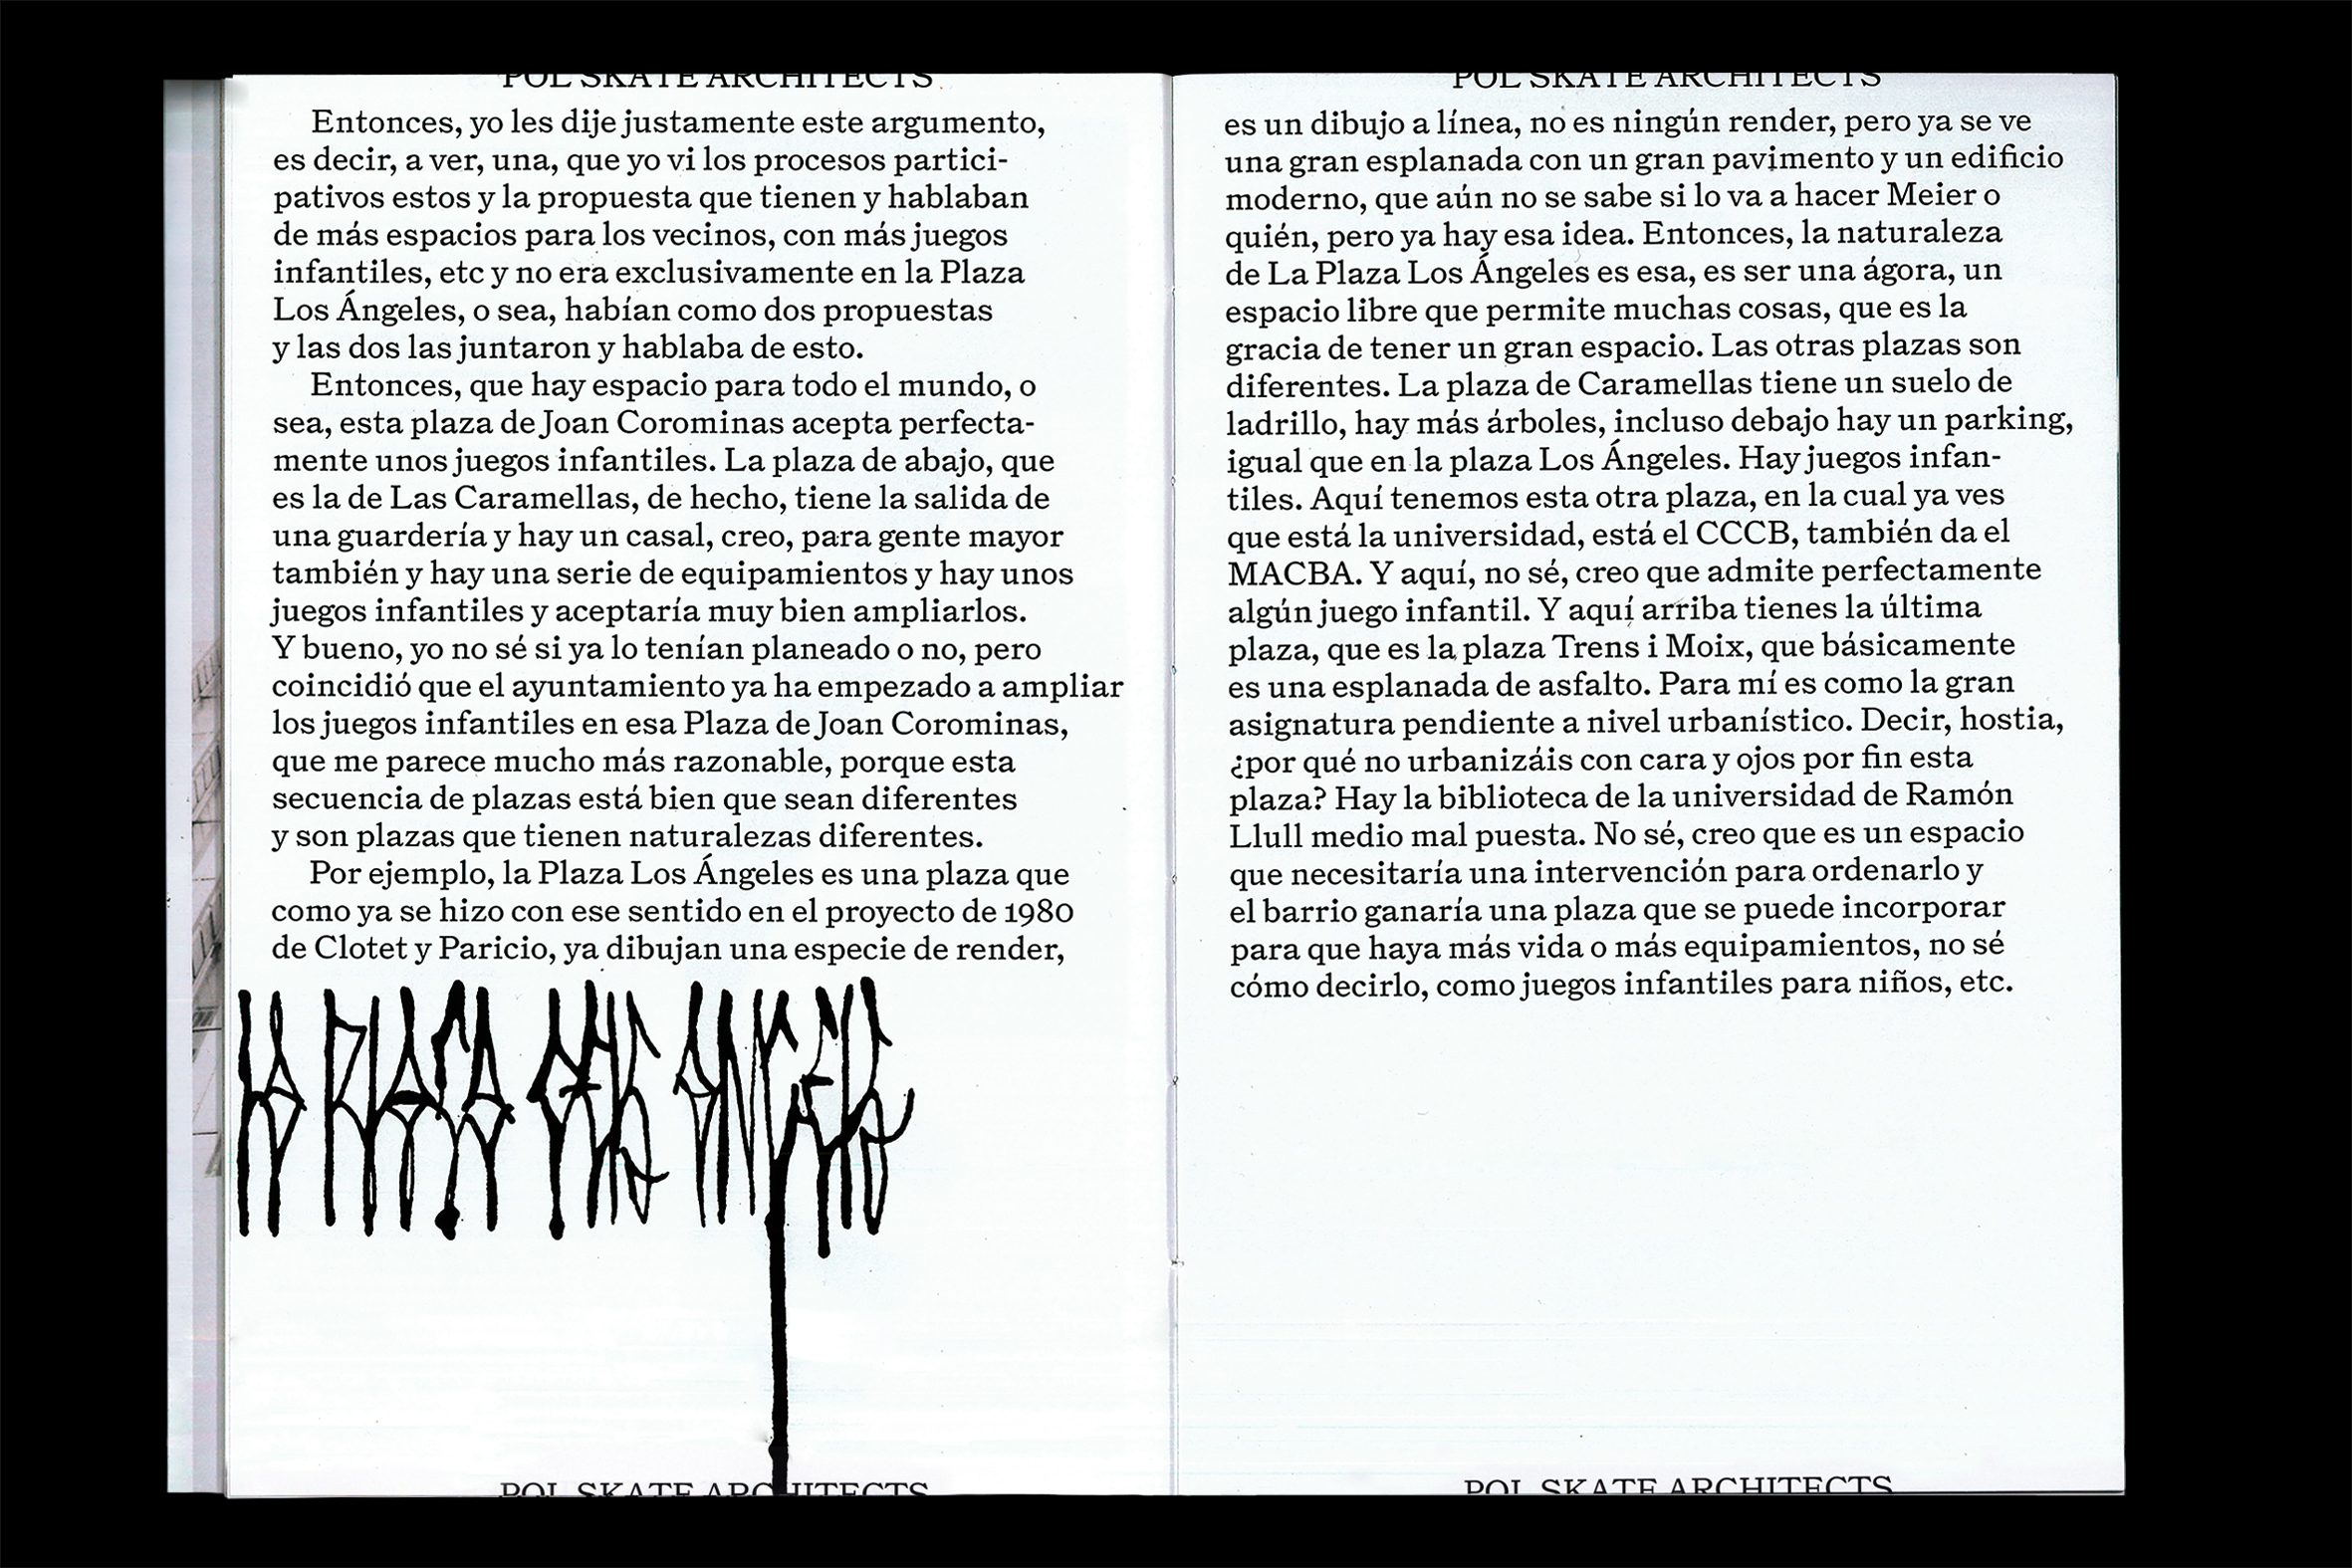 POL SKATE ARCHITECTS
Entonces, yo les dije justamente este argumento,
es decir, a ver, una, que yo vi los procesos partici-
pativos estos y la propuesta que tienen y hablaban
de más espacios para los vecinos, con más juegos
infantiles, etc y no era exclusivamente en la Plaza
Los Ángeles, o sea, habían como dos propuestas
y las dos las juntaron y hablaba de esto.
Entonces, que hay espacio para todo el mundo, o
sea, esta plaza de Joan Corominas acepta perfecta-
mente unos juegos infantiles. La plaza de abajo, que
es la de Las Caramellas, de hecho, tiene la salida de
una guardería y hay un casal, creo, para gente mayor
también y hay una serie de equipamientos y hay unos
juegos infantiles y aceptaría muy bien ampliarlos.
Y bueno, yo no sé si ya lo tenían planeado o no, pero
coincidió que el ayuntamiento ya ha empezado a ampliar
los juegos infantiles en esa Plaza de Joan Corominas,
que me parece mucho más razonable, porque esta
secuencia de plazas está bien que sean diferentes
y son plazas que tienen naturalezas diferentes.
Por ejemplo, la Plaza Los Ángeles es una plaza que
como ya se hizo con ese sentido en el proyecto de 1980
de Clotet y Paricio, ya dibujan una especie de render,
LA PLAÇA DELS ANGELS
POL SKATE ARCHITECTS
POL SKATE ARCHITECTS
es un dibujo a línea, no es ningún render, pero ya se ve
una gran esplanada con un gran pavimento y un edificio
moderno, que aún no se sabe si lo va a hacer Meier o
quién, pero ya hay esa idea. Entonces, la naturaleza
de La Plaza Los Ángeles es esa, es ser una ágora, un
espacio libre que permite muchas cosas, que es la
gracia de tener un gran espacio. Las otras plazas son
diferentes. La plaza de Caramellas tiene un suelo de
ladrillo, hay más árboles, incluso debajo hay un parking,
igual que en la plaza Los Ángeles. Hay juegos infan-
tiles. Aquí tenemos esta otra plaza, en la cual ya ves
que está la universidad, está el CCCB, también da el
MACBA. Y aquí, no sé, creo que admite perfectamente
algún juego infantil. Y aquí arriba tienes la última
plaza, que es la plaza Trens i Moix, que básicamente
es una esplanada de asfalto. Para mí es como la gran
asignatura pendiente a nivel urbanístico. Decir, hostia,
¿por qué no urbanizáis con cara y ojos por fin esta
plaza? Hay la biblioteca de la universidad de Ramón
Llull medio mal puesta. No sé, creo que es un espacio
que necesitaría una intervención para ordenarlo y
el barrio ganaría una plaza que se puede incorporar
para que haya más vida o más equipamientos, no sé
cómo decirlo, como juegos infantiles para niños, etc.
POL SKATE ARCHITECTS